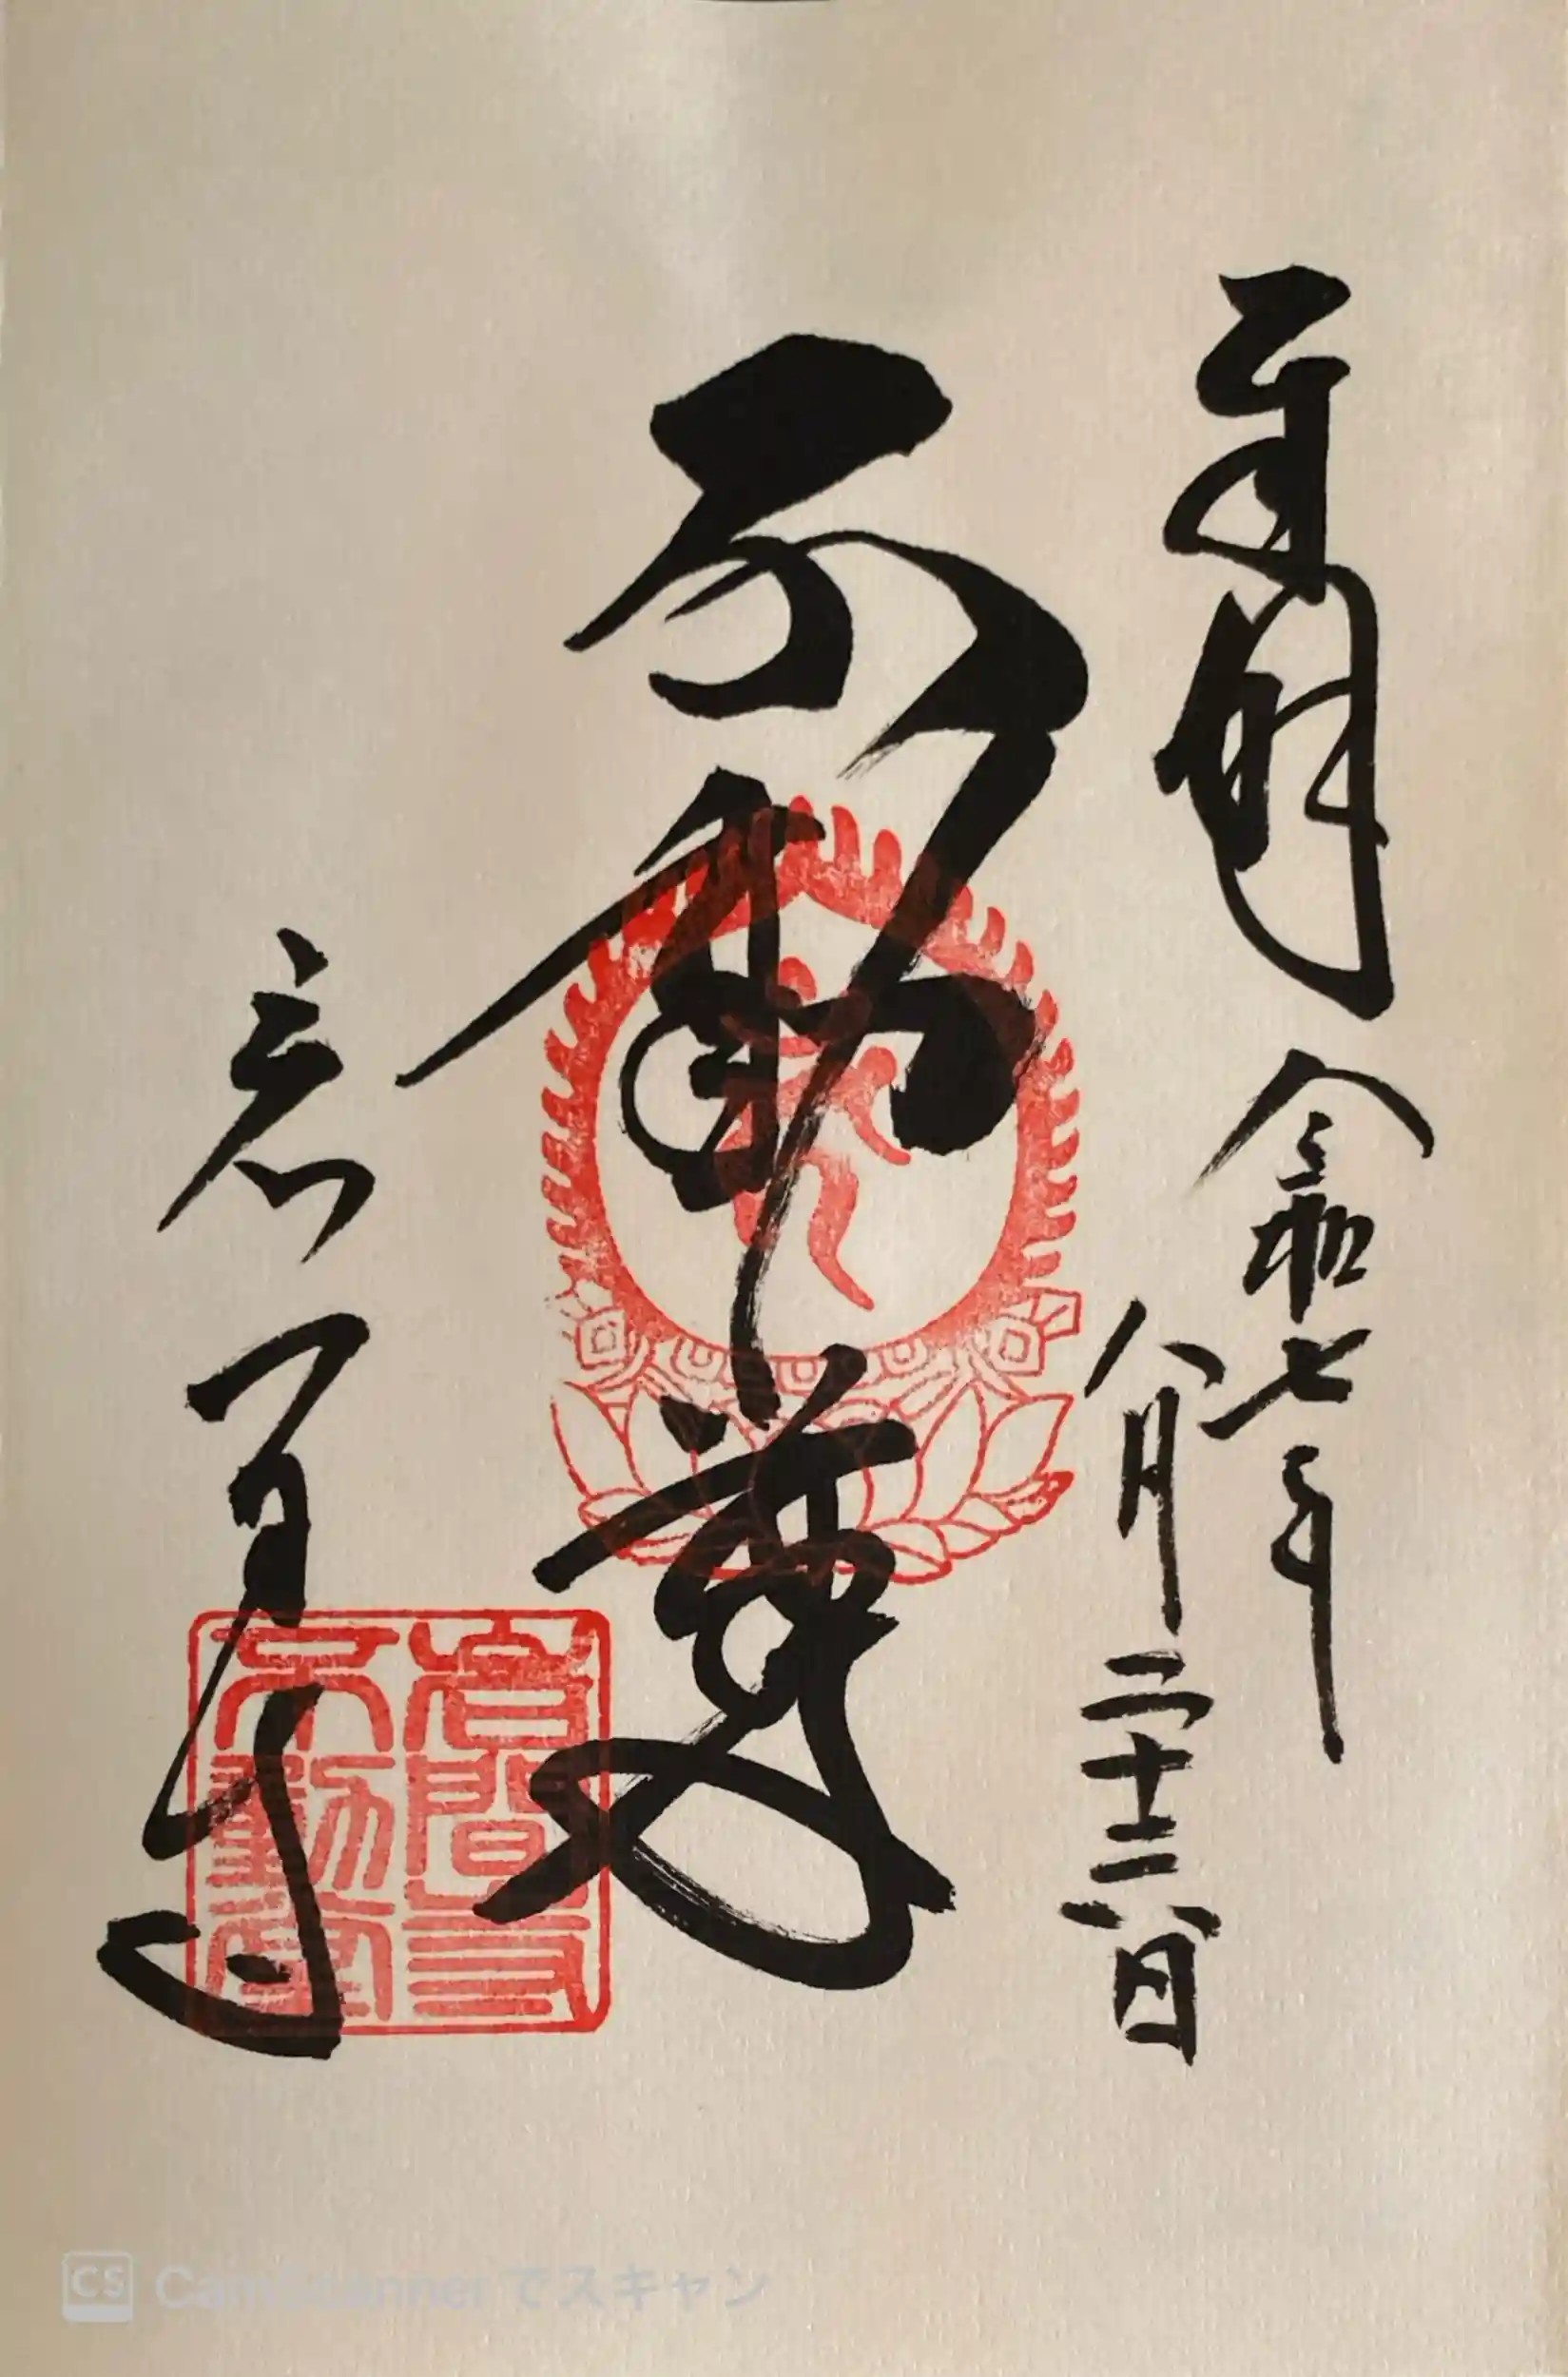 奉拝
令和七年
八月二十三日
不動尊
不動堂
CS CamScanner でスキャン